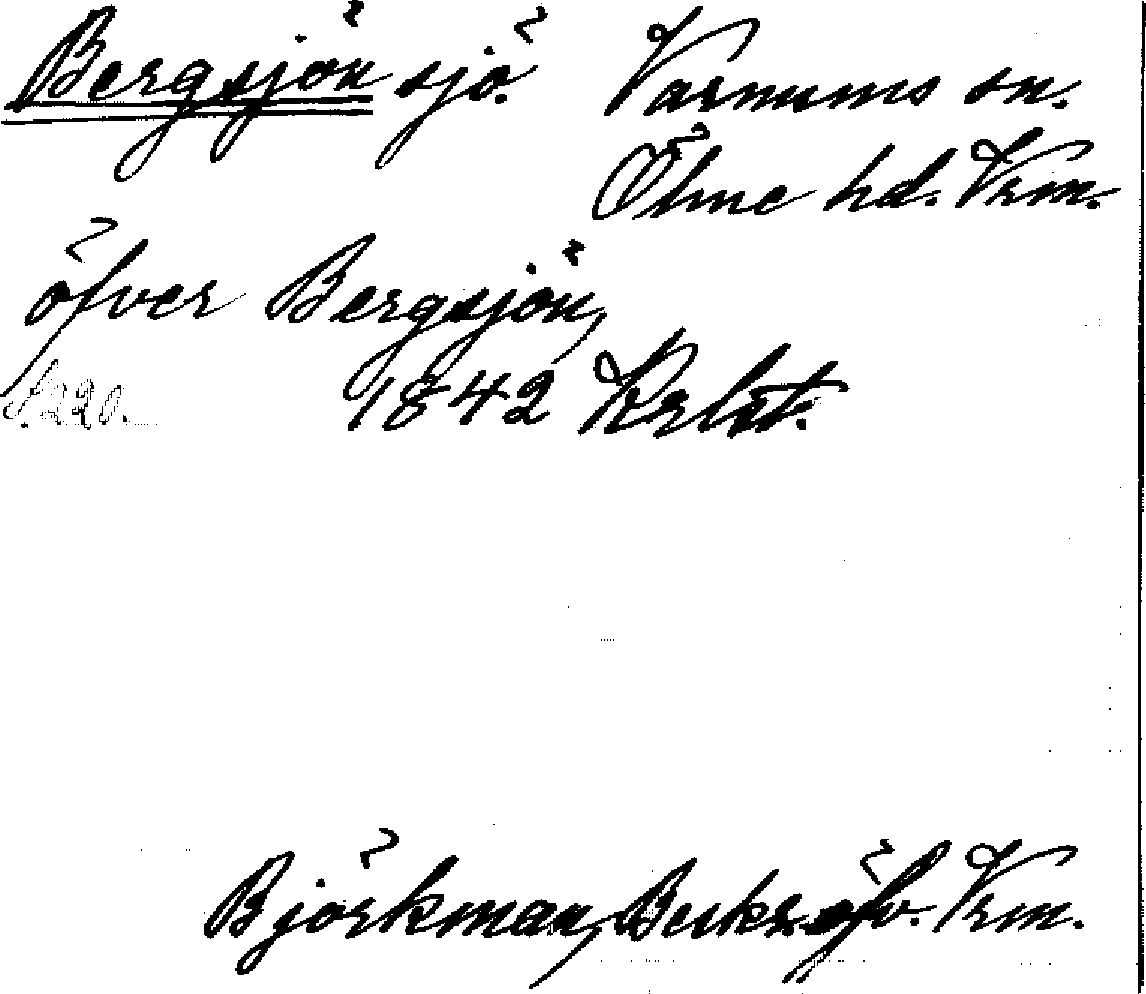 Bergsjön sjö. Varnums sn.
Ölme hd. Vrm.
öfver Bergsjön,
s. 220. 1842 Krlst.
Björkman, Beskr. öfv. Vrm.